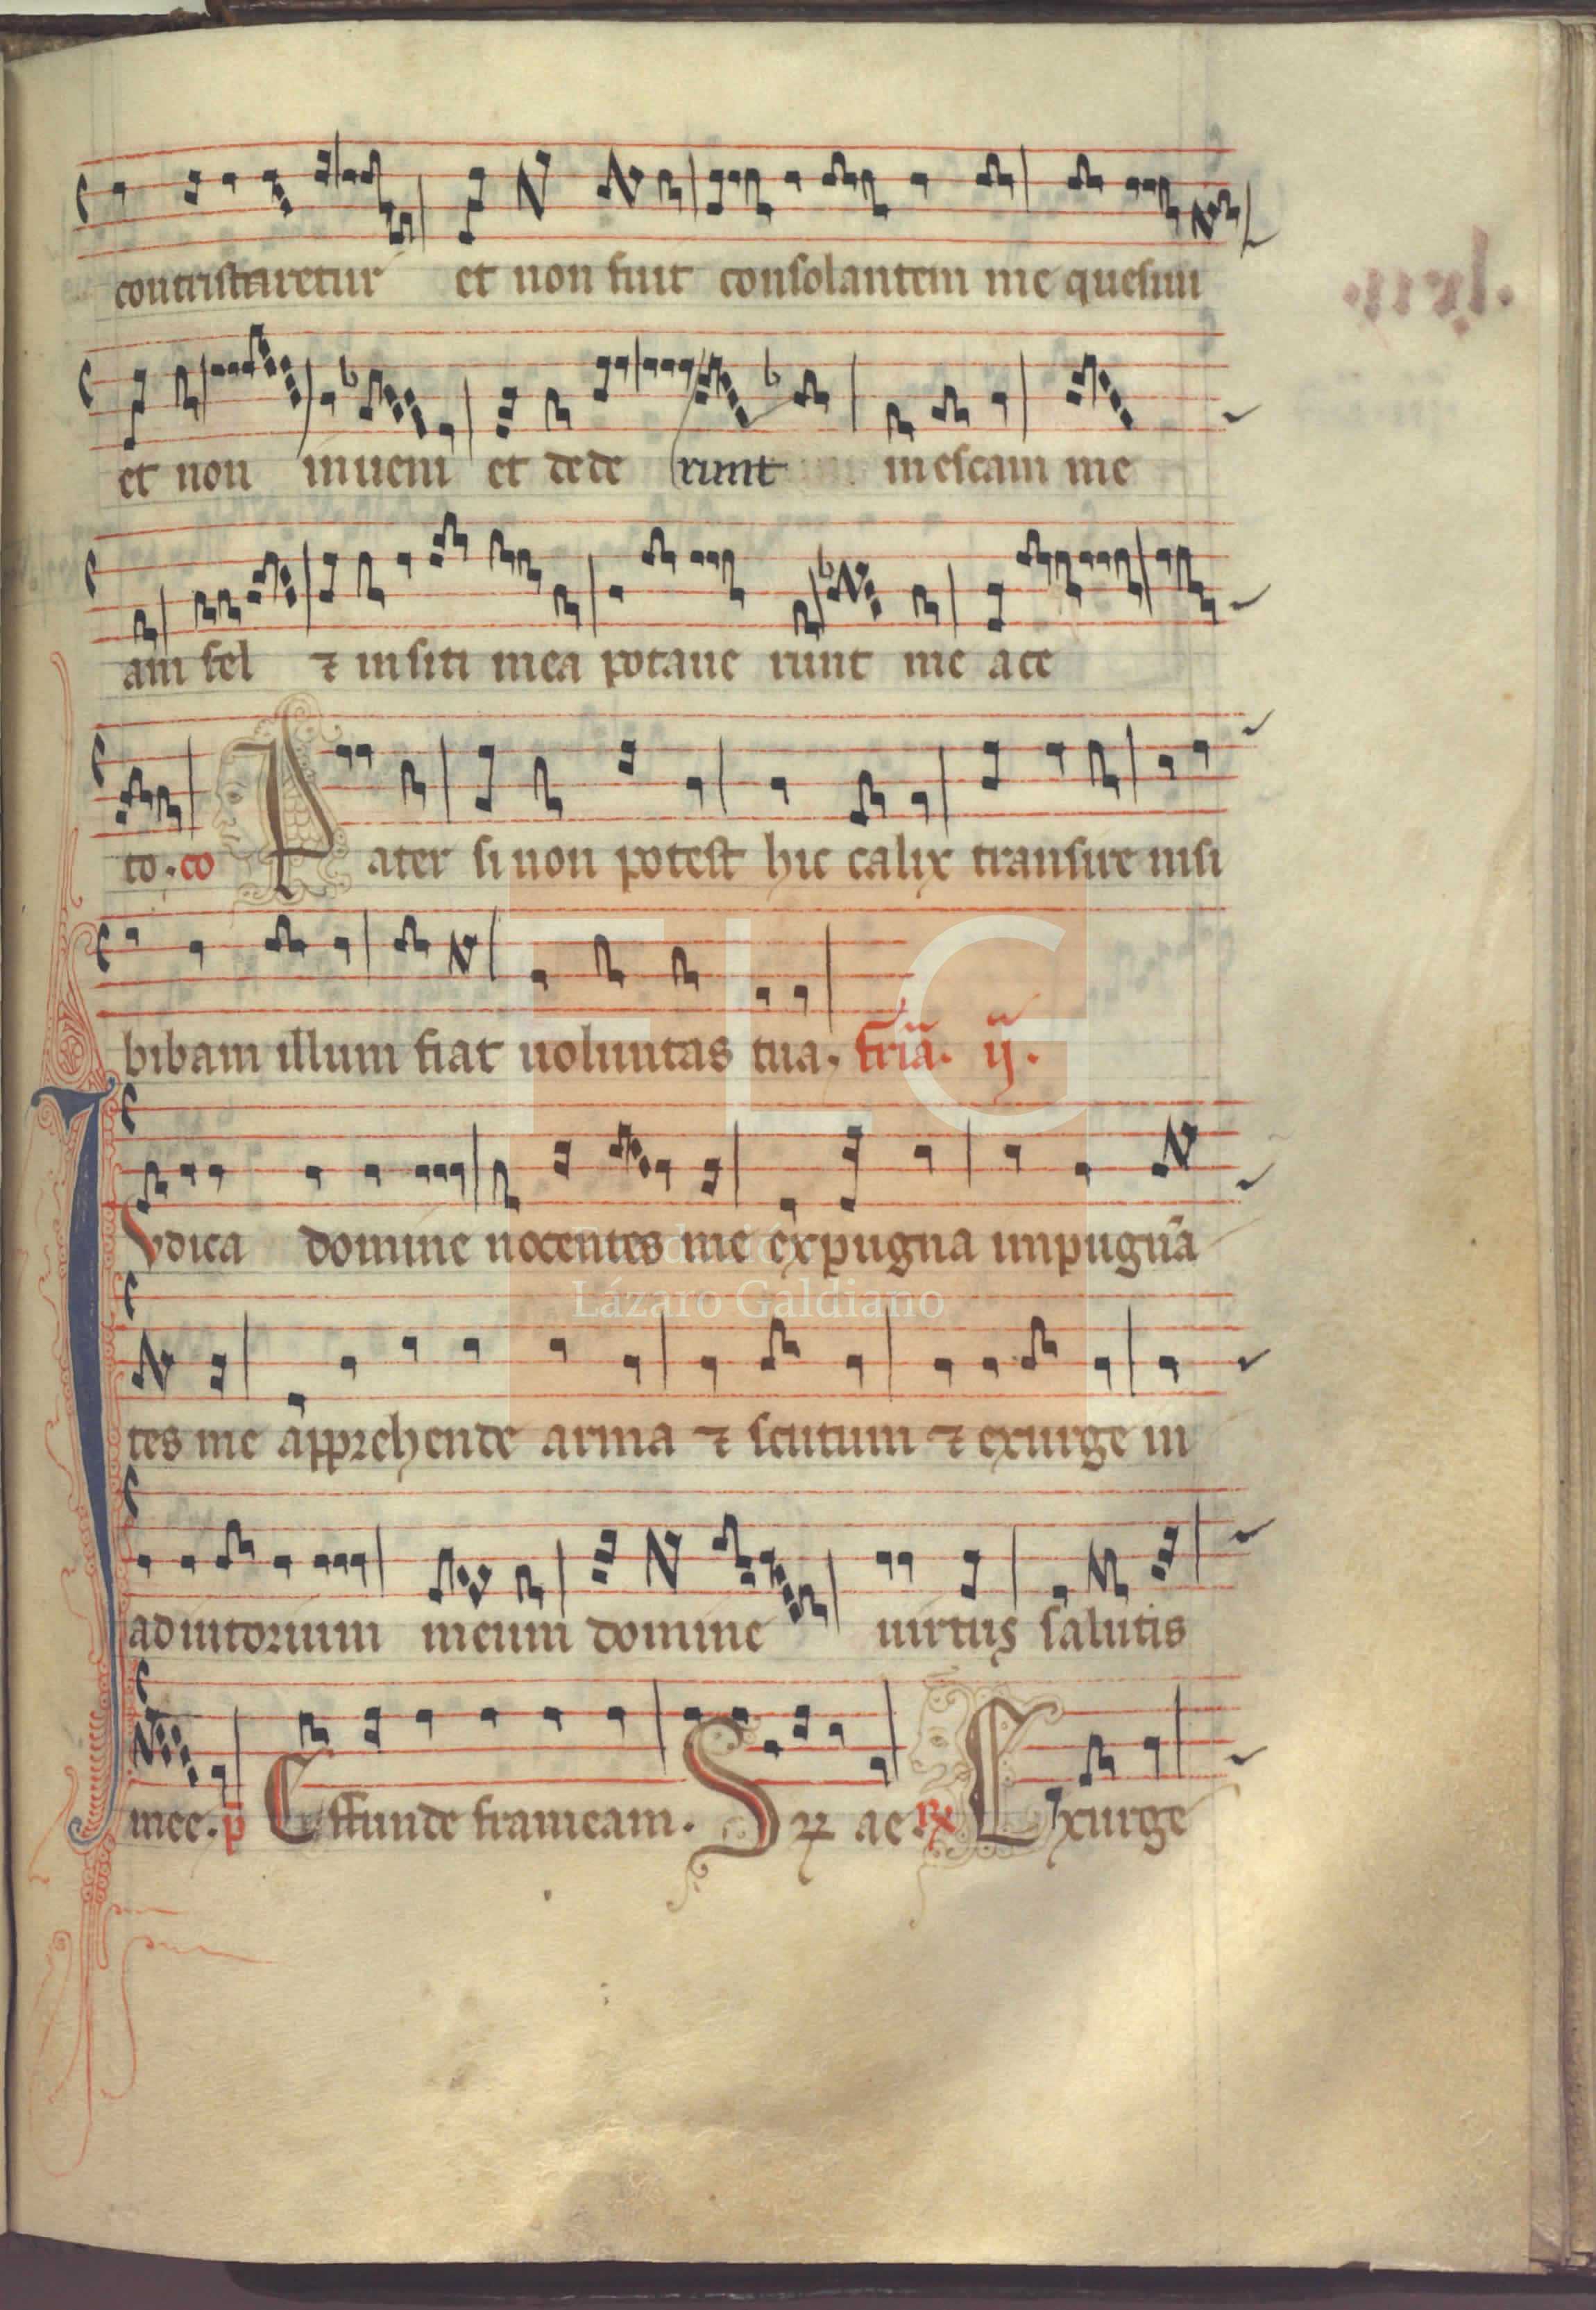 contristaretur et non fuit consolantem me quesiui
et non inueni et dede runt in escam me
am fel ⁊ in siti mea potaue runt me ace
to. co Pater si non potest hic calix transire nisi
bibam illum fiat uoluntas tua. fria. ij.
Iudica domine nocentes me expugna impugnā
tes me apprehende arma ⁊ scutum ⁊ exurge in
adiutorium meum domine uirtus salutis
mee. p̄ Effunde frameam. S ꝝ ae. R̸ Exurge
FLG
Fundación
Lázaro Galdiano